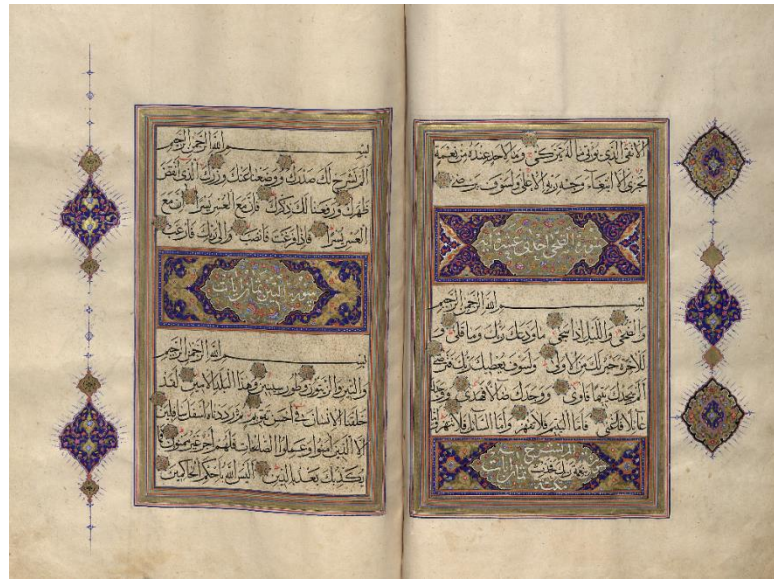 الاتقى الذي يؤتي ماله يتزكى وما لاحد عنده من نعمة
تجزى الا ابتغاء وجه ربه الاعلى ولسوف يرضى
سورة الضحى احدى عشر اية
بسم الله الرحمن الرحيم
والضحى والليل اذا سجى ما ودعك ربك وما قلى و
للاخرة خير لك من الاولى ولسوف يعطيك ربك فترضى
الم يجدك يتيما فاوى ووجدك ضالا فهدى ووجدك
عائلا فاغنى فاما اليتيم فلا تقهر واما السائل فلا تنهر واما
الم نشرح
بنعمة ربك فحدث ثمان ايات
بسم الله الرحمن الرحيم
الم نشرح لك صدرك ووضعنا عنك وزرك الذي انقض
ظهرك ورفعنا لك ذكرك فان مع العسر يسرا ان مع
العسر يسرا فاذا فرغت فانصب والى ربك فارغب
سورة التين ثمان ايات
بسم الله الرحمن الرحيم
والتين والزيتون وطور سينين وهذا البلد الامين لقد
خلقنا الانسان في احسن تقويم ثم رددناه اسفل سافلين
الا الذين امنوا وعملوا الصالحات فلهم اجر غير ممنون فما
يكذبك بعد بالدين اليس الله باحكم الحاكمين